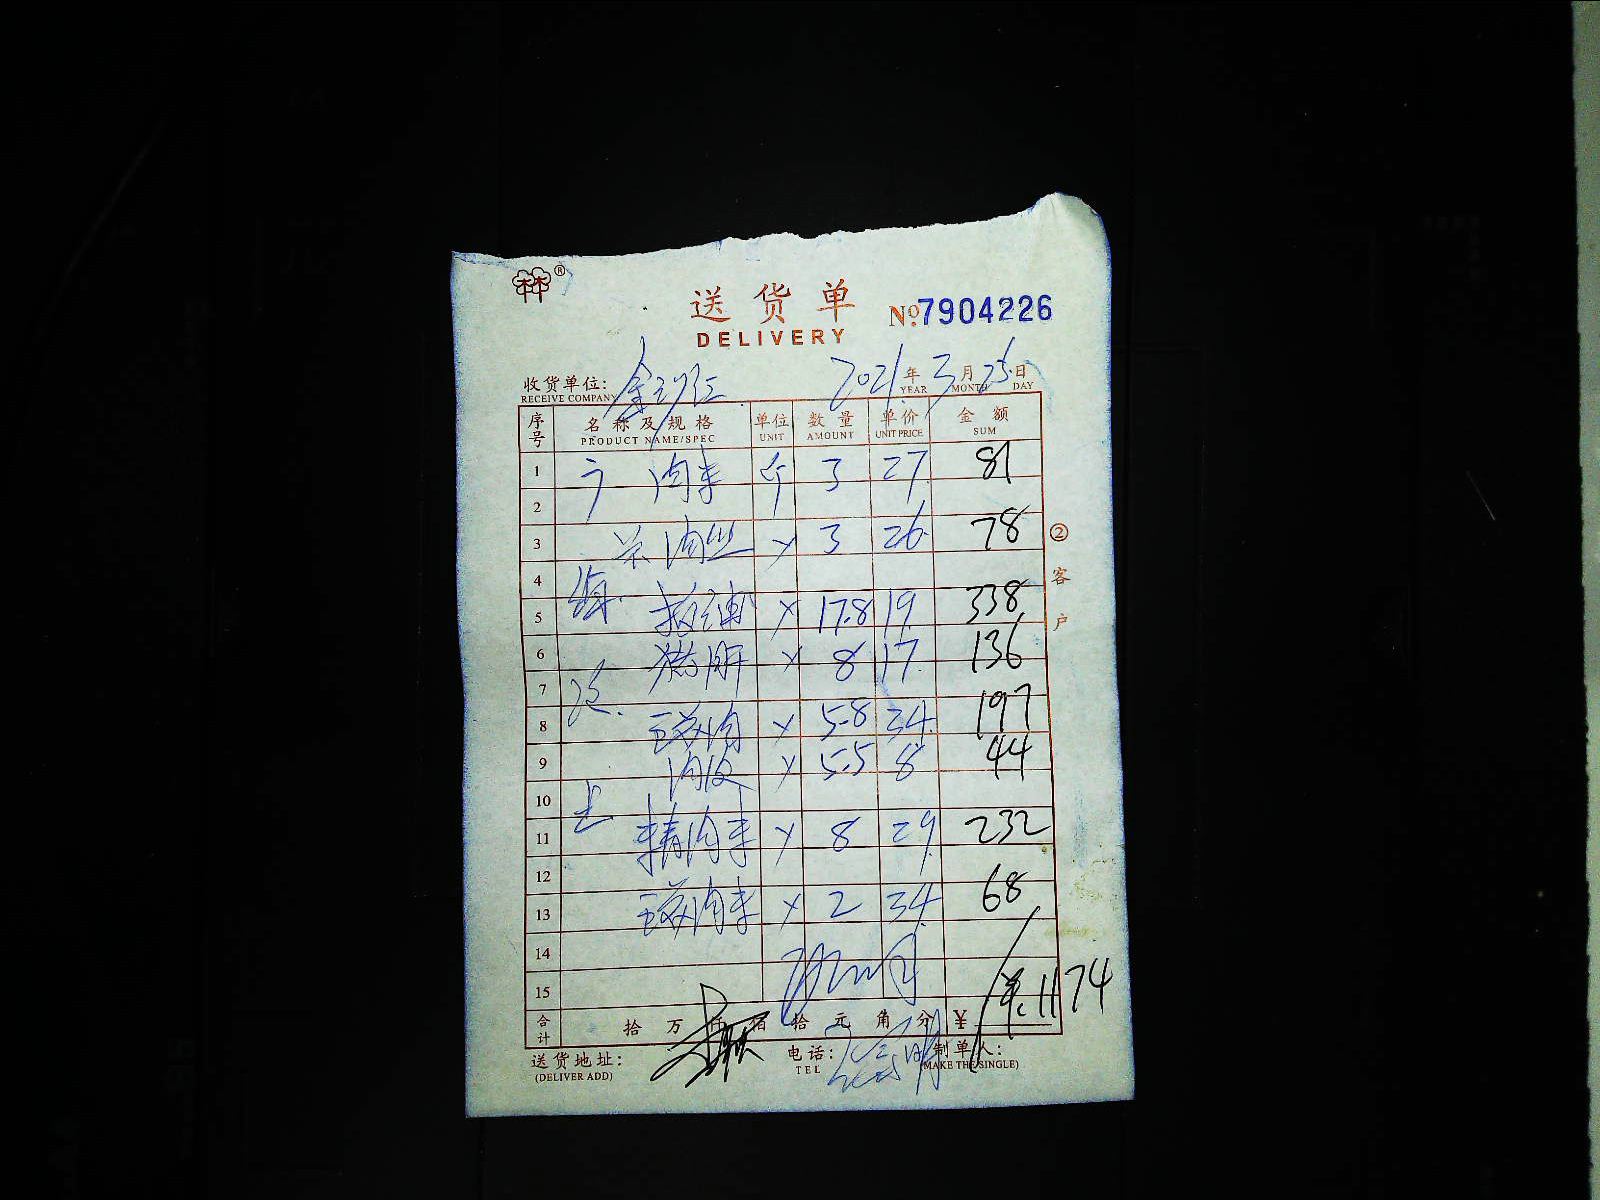 林®
送货单
DELIVERY
No.7904226
收货单位:
RECEIVE COMPANY
2021年3月25日
YEAR MONTH DAY
序号 名称及规格 单位 数量 单价 金额
PRODUCT NAME/SPEC UNIT AMOUNT UNIT PRICE SUM
1 肉末 斤 3 27 81
2
3 肉丝 3 26 78
4
5 17.8 19 338
6 猪肝 8 17 136
7
8 肉 5.8 34 197
9 肉皮 5.5 8 44
10
11 精肉末 8 29 232
12
13 肉末 2 34 68
14
15
合计 拾 万 仟 佰 拾 元 角 分 ¥ 1174
②客户
送货地址: 电话: 制单人:
(DELIVER ADD) TEL (MAKE THE SINGLE)